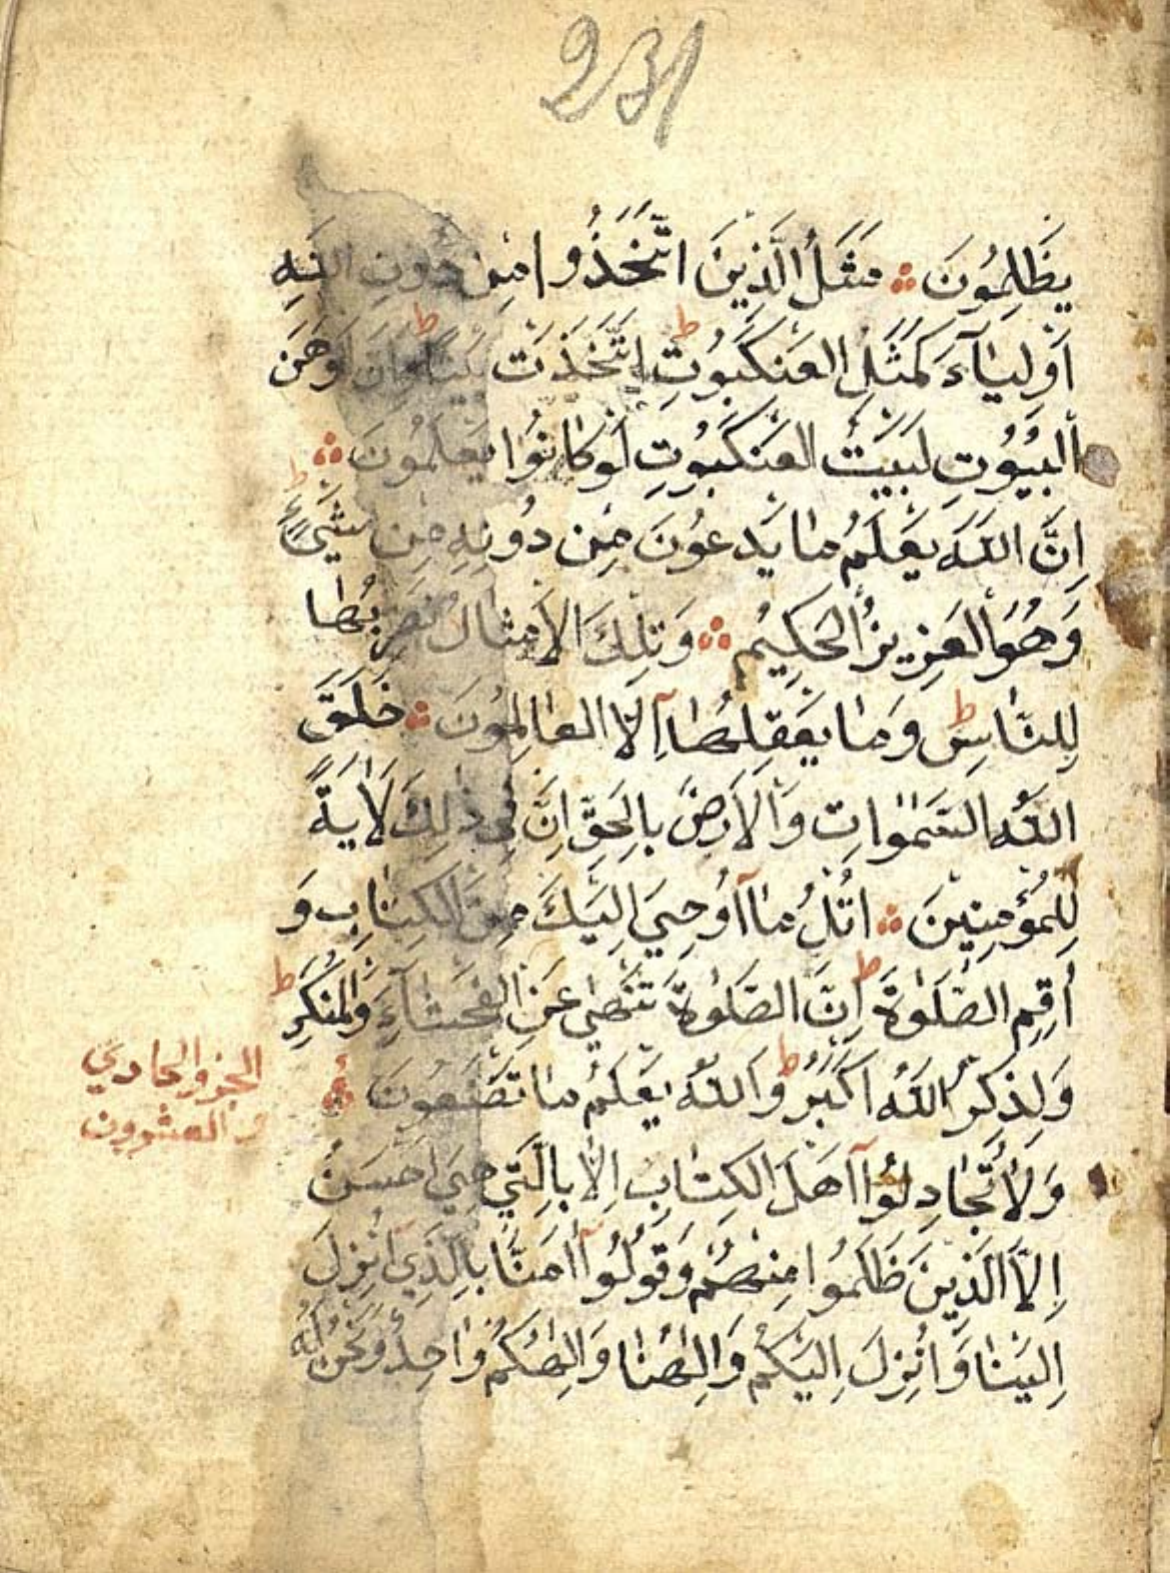 231
يَظْلِمُونَ ۞ مَثَلُ الَّذِينَ اتَّخَذُوا مِن دُونِ اللَّهِ
اَوْلِيَآءَ كَمَثَلِ الْعَنْكَبُوتِ ط اِتَّخَذَت بَيْتًا ط وَاِنَّ اَوْهَنَ
الْبُيُوتِ لَبَيْتُ الْعَنْكَبُوتِ لَوْ كَانُوا يَعْلَمُونَ ۞
اِنَّ اللَّهَ يَعْلَمُ مَا يَدْعُونَ مِن دُونِهِ مِن شَيْءٍ ط
وَهُوَ الْعَزِيزُ الْحَكِيمُ ۞ وَتِلْكَ الْاَمْثَالُ نَضْرِبُهَا
لِلنَّاسِ ط وَمَا يَعْقِلُهَآ اِلَّا الْعَالِمُونَ ۞ خَلَقَ
اللَّهُ السَّمٰوَاتِ وَالْاَرْضَ بِالْحَقِّ اِنَّ فِي ذٰلِكَ لَاٰيَةً
لِلْمُؤْمِنِينَ ۞ اُتْلُ مَآ اُوحِيَ اِلَيْكَ مِنَ الْكِتَابِ وَ
اَقِمِ الصَّلٰوةَ ط اِنَّ الصَّلٰوةَ تَنْهٰى عَنِ الْفَحْشَآءِ وَالْمُنكَرِ ط
وَلَذِكْرُ اللَّهِ اَكْبَرُ ط وَاللَّهُ يَعْلَمُ مَا تَصْنَعُونَ ۞
الجزو الحادي
و العشرون
وَلَا تُجَادِلُوٓا اَهْلَ الْكِتَابِ اِلَّا بِالَّتِي هِيَ اَحْسَنُ
اِلَّا الَّذِينَ ظَلَمُوا مِنْهُمْ وَقُولُوٓا اٰمَنَّا بِالَّذِيٓ اُنْزِلَ
اِلَيْنَا وَاُنْزِلَ اِلَيْكُمْ وَاِلٰهُنَا وَاِلٰهُكُمْ وَاحِدٌ وَنَحْنُ لَهُ